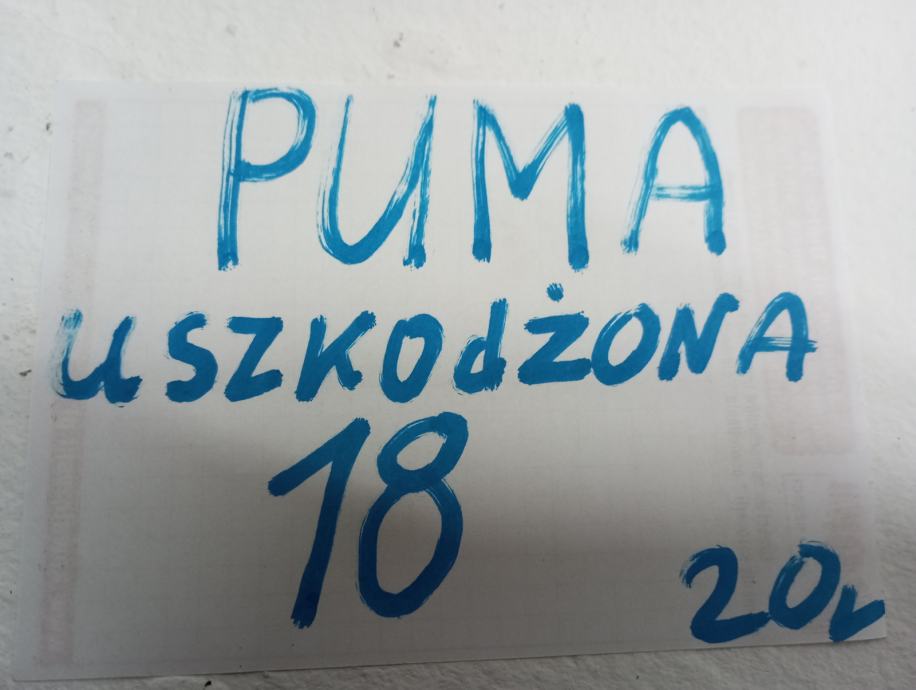 PUMA
USZKOdŻONA
18
20v